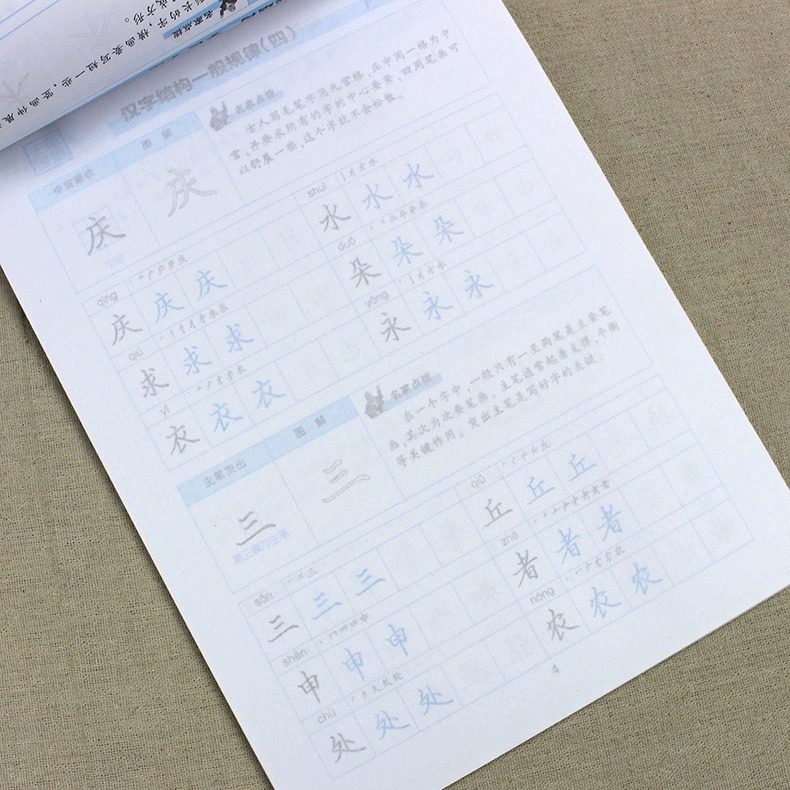 名家点拨
长的字，横画要写短一些，竖画伸展
成方形。
汉字结构一般规律(四)
中宫紧收
图解
名家点拨
古人写毛笔字用九宫格，正中间一格为中
宫，并要求所有的字的中心要紧，四周笔画可
以舒展一些，这个字就不会松散。
庆
庆
qìng
庆 庆 庆
shuǐ
水 水 水
qiú
求 求 求
duǒ
朵 朵 朵
yī
衣 衣 衣
yǒng
永 永 永
主笔突出
图解
名家点拨
在一个字中，一般只有一至两笔是主要笔
画，其次为次要笔画，主笔通常起着支撑、平衡
等关键作用。突出主笔是写好字的关键。
三
三
第三横为主笔
sān
三 三 三
qiū
丘 丘 丘
shēn
申 申 申
zhě
者 者 者
chù
处 处 处
nóng
农 农 农
4